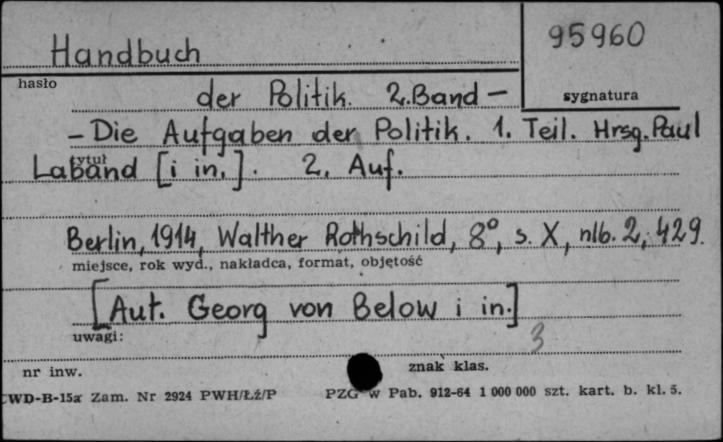 Handbuch
95960
hasło
der Politik. 2. Band —
sygnatura
— Die Aufgaben der Politik. 1. Teil. Hrsg. Paul
tytuł
Laband [i in.]. 2. Auf.
Berlin, 1914, Walther Rothschild, 8°, s. X, nlb. 2, 429.
miejsce, rok wyd., nakładca, format, objętość
[Aut. Georg von Below i in.]
uwagi:
3
nr inw.
znak klas.
CWD-B-15a Zam. Nr 2924 PWH/Łź/P PZG w Pab. 912-64 1 000 000 szt. kart. b. kl. 5.